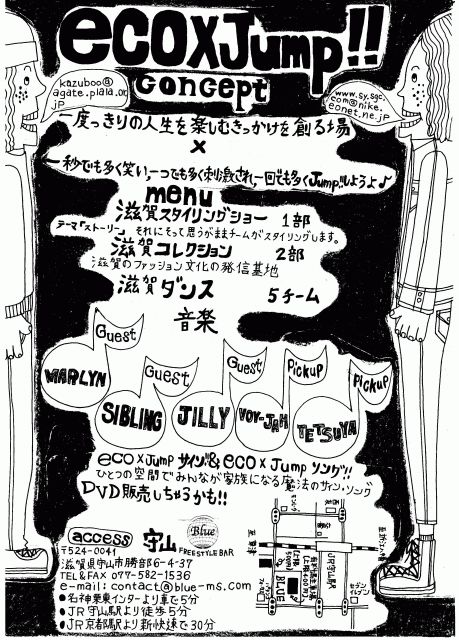 ecoxJump!!
concept
kazuboo@
agate.plala.or
jp
www.sy.sgc.
com@nike.
eonet.ne.jp
一度っきりの人生を楽しむきっかけを創る場
×
一秒でも多く笑い、一つでも多く刺激され、一回でも多くJump!!しようよ♪
menu
滋賀スタイリングショー 1部
テーマ「ストーリー」 それにそって思うがままチームがスタイリングします。
滋賀コレクション 2部
滋賀のファッション文化の発信基地
滋賀ダンス 5チーム
音楽
Guest
MARLYN
Guest
SIBLING
Guest
JILLY
Pickup
VOY-JAH
Pickup
TETSUYA
eco×Jump サイン&eco×Jump ソング!!
ひとつの空間でみんなが家族になる魔法のサイン・ソング
DVD販売しちゃうかも!!
access 守山 Blue
FREESTYLE BAR
〒524-0041
滋賀県守山市勝部6-4-37
TEL&FAX 077-582-1536
e-mail: contact@blue-ms.com
●名神栗東インターより車で5分
●JR守山駅より徒歩5分
●JR京都駅より新快速で30分
JR守山駅
BLUE
セブン
イレブン